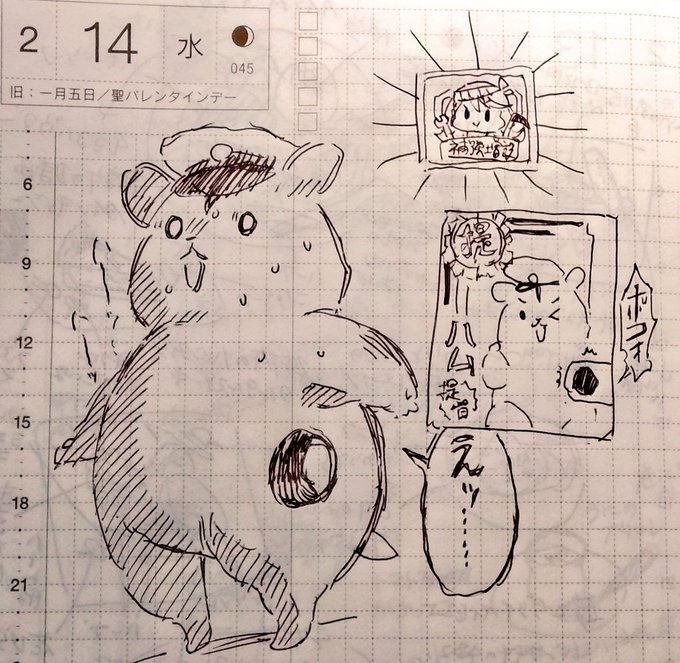 2 14 水
045
旧：一月五日／聖バレンタインデー
補強増設
提
ハム提督
ボコォ
えッ……
6
9
12
15
18
21